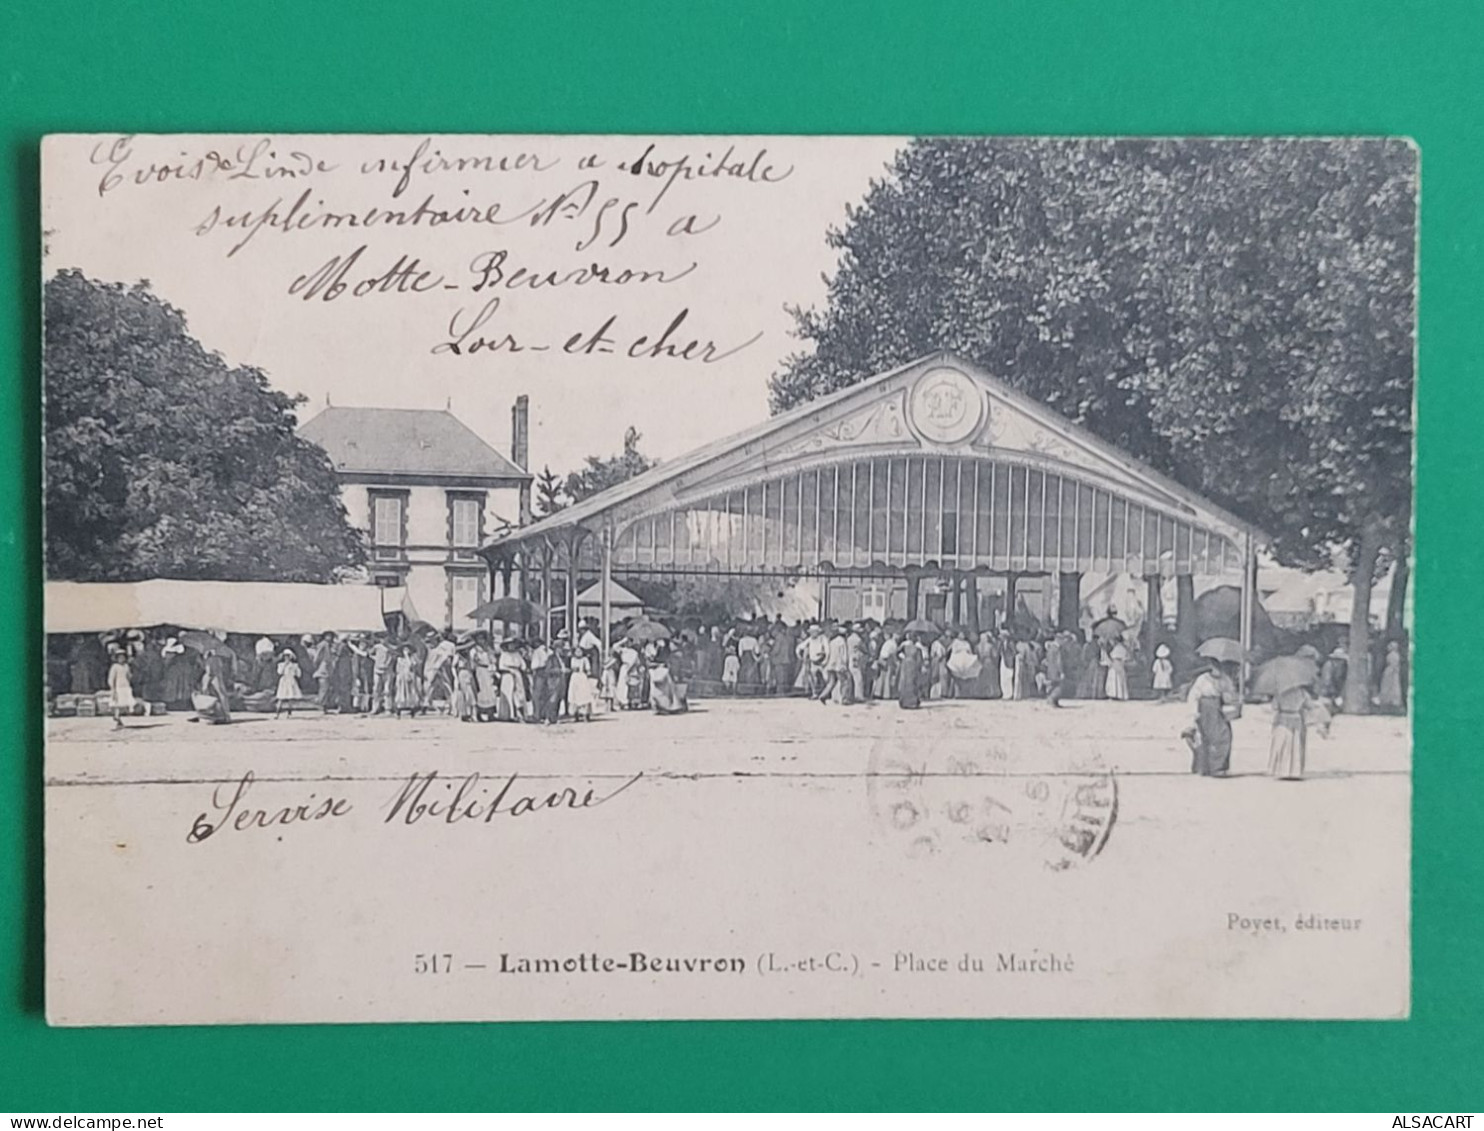 Evois de Linde infirmier a hopitale
suplimentaire No 55 a
Motte-Beuvron
Loir-et-cher
RF
Servise Militaire
6
27
Poyet, éditeur
517 — Lamotte-Beuvron (L.-et-C.) - Place du Marché
ALSACART